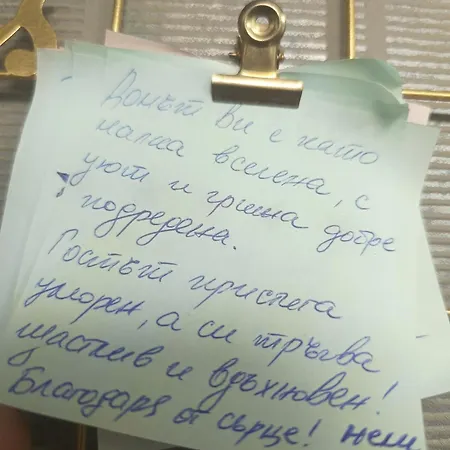 Домът Ви е като
малка вселена, с
уют и грижа добре
подредена.
Гостът пристига
уморен, а си тръгва
щастлив и вдъхновен!
Благодаря от сърце! Нели